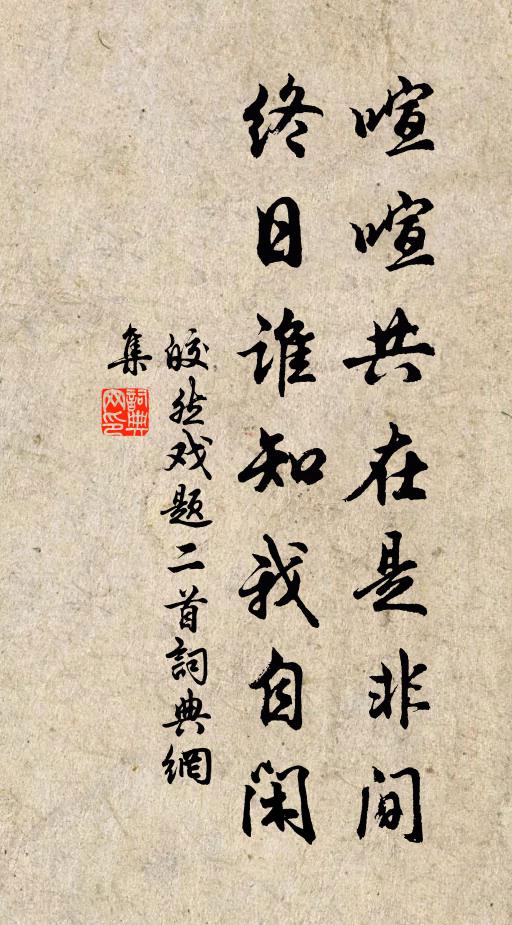 喧喧共在是非间
终日谁知我自闲
皎然戏题二首詞典網
集
詞典
网印